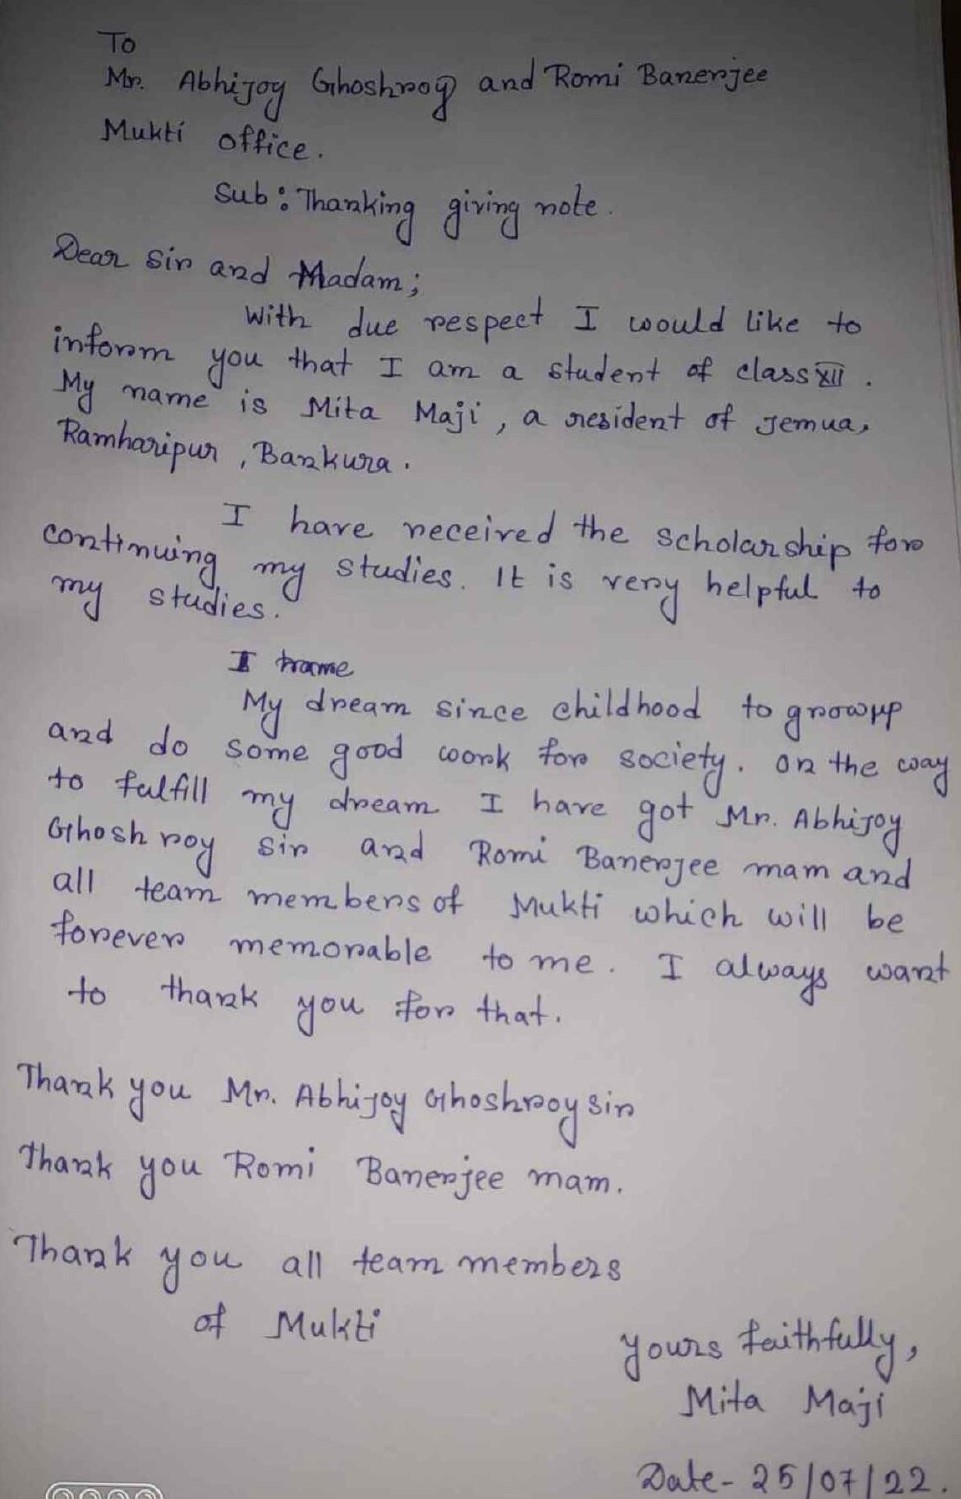 To
Mr. Abhijoy Ghoshroy and Romi Banerjee
Mukti office.
Sub: Thanking giving note.
Dear Sir and Madam;
With due respect I would like to
inform you that I am a student of class XII.
My name is Mita Maji, a resident of Jemua,
Ramharipur, Bankura.
I have received the scholarship for
continuing my studies. It is very helpful to
my studies.
I
My dream since childhood to growup
and do some good work for society. on the way
to fulfill my dream I have got Mr. Abhijoy
Ghosh roy sir and Romi Banerjee mam and
all team members of Mukti which will be
forever memorable to me. I always want
to thank you for that.
Thank you Mr. Abhijoy Ghoshroy sir
Thank you Romi Banerjee mam.
Thank you all team members
of Mukti
yours faithfully,
Mita Maji
Date- 25/07/22.